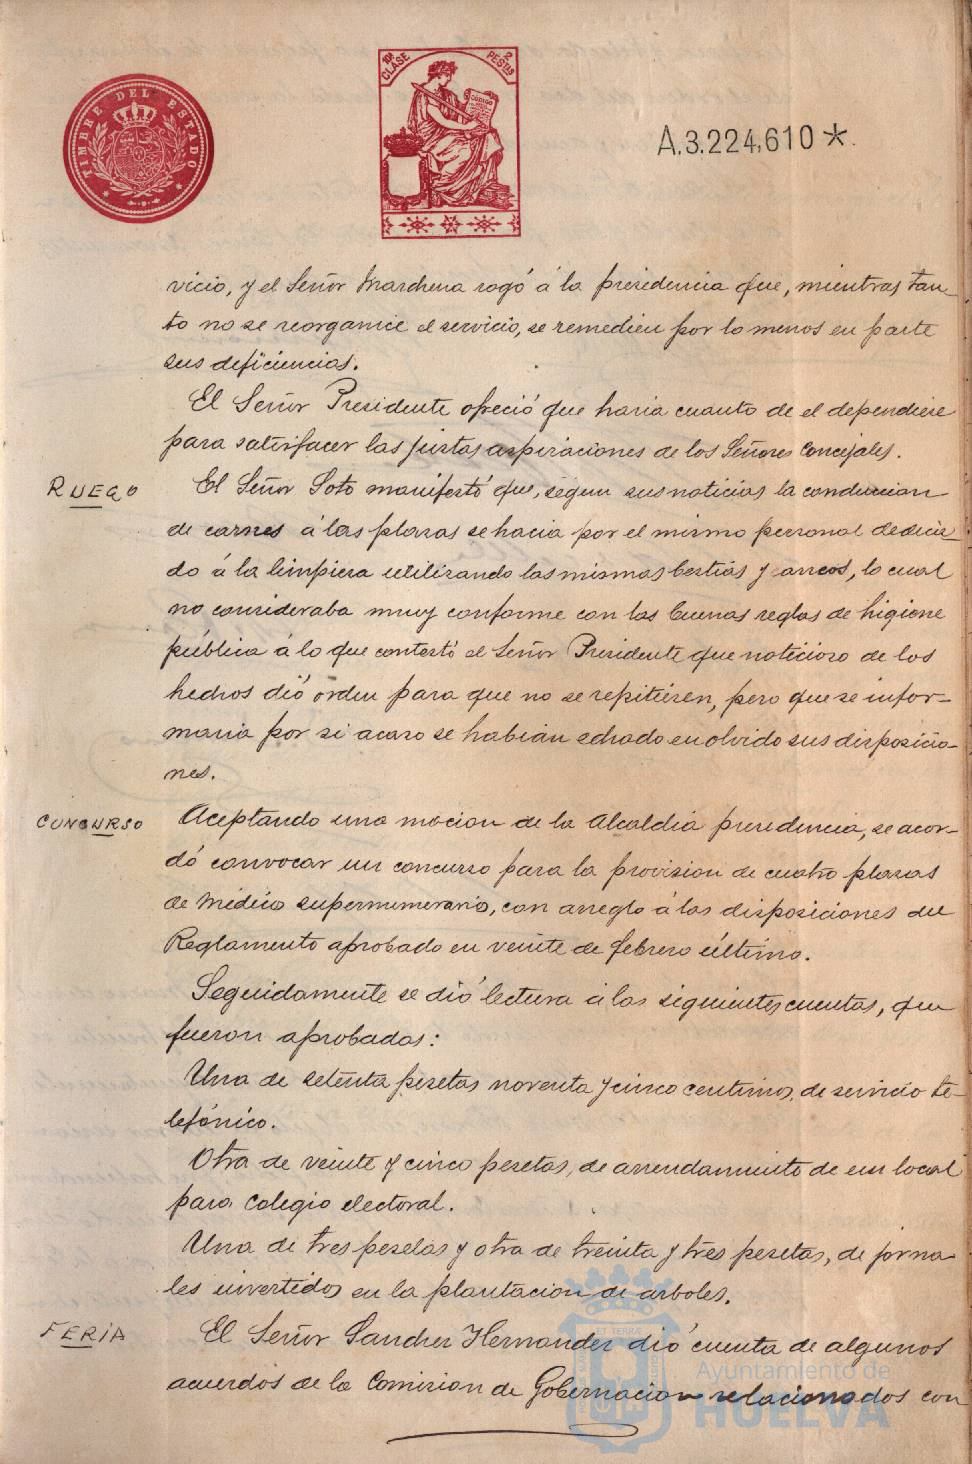 TIMBRE DEL ESTADO
10ª CLASE
2 PESTAS
CODIGO
A.3.224,610*.
vicio, y el Señor Marchena rogó á la presidencia que, mientras tan-
to no se reorganice el servicio, se remedien por lo menos en parte
sus deficiencias.
El Señor Presidente ofreció que haria cuanto de el dependiese
para satisfacer las justas aspiraciones de los Señores Concejales.
RUEGO
El Señor Soto manifestó que, segun sus noticias la conduccion
de carnes á las plazas se hacia por el mismo personal dedica-
do á la limpieza utilizando las mismas bestias y arreos, lo cual
no consideraba muy conforme con las buenas reglas de higiene
pública á lo que contestó el Señor Presidente que noticioso de los
hechos dió orden para que no se repitiesen, pero que se infor-
maria por si acaso se habian echado en olvido sus disposicio-
nes.
CONCURSO
Aceptando una mocion de la Alcaldia presidencia, se acor-
dó convocar un concurso para la provision de cuatro plazas
de Médico supernumerario, con arreglo á las disposiciones del
Reglamento aprobado en veinte de febrero último.
Seguidamente se dió lectura á las siguientes cuentas, que
fueron aprobadas:
Una de setenta pesetas noventa y cinco centimos, de servicio te-
lefónico.
Otra de veinte y cinco pesetas, de arrendamiento de un local
para Colegio electoral.
Una de tres pesetas y otra de treinta y tres pesetas, de jorna-
les invertidos en la plantacion de arboles.
FERIA
El Señor Sanchez Hernandez dió cuenta de algunos
acuerdos de la Comision de Gobernacion relacionados con
Ayuntamiento de
HUELVA